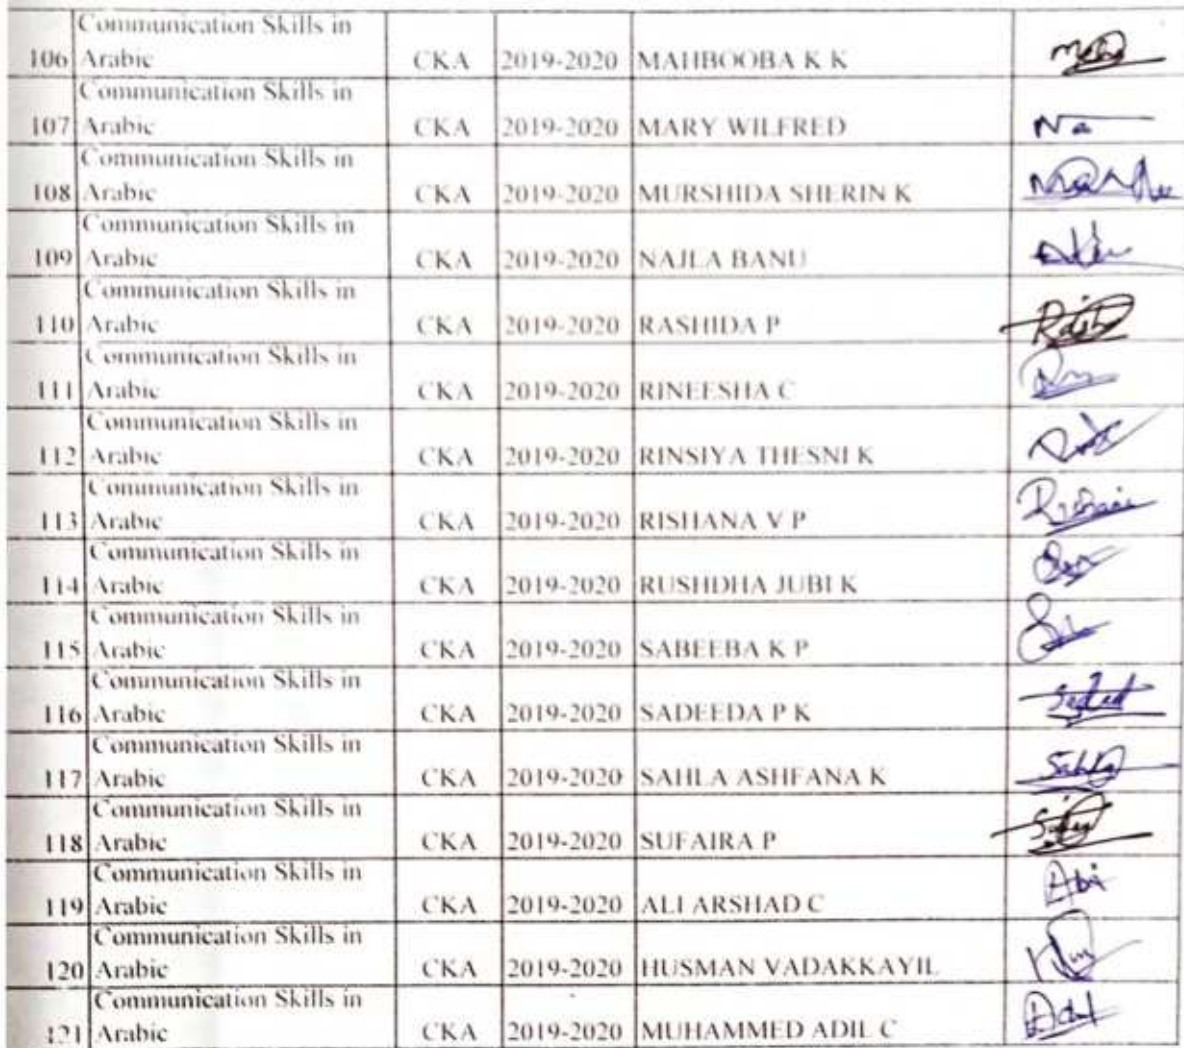 Communication Skills in
106 Arabic CKA 2019-2020 MAHBOOBA K K
Communication Skills in
107 Arabic CKA 2019-2020 MARY WILFRED
Communication Skills in
108 Arabic CKA 2019-2020 MURSHIDA SHERIN K
Communication Skills in
109 Arabic CKA 2019-2020 NAJLA BANU
Communication Skills in
110 Arabic CKA 2019-2020 RASHIDA P
Communication Skills in
111 Arabic CKA 2019-2020 RINEESHA C
Communication Skills in
112 Arabic CKA 2019-2020 RINSIYA THESNI K
Communication Skills in
113 Arabic CKA 2019-2020 RISHANA V P
Communication Skills in
114 Arabic CKA 2019-2020 RUSHDHA JUBI K
Communication Skills in
115 Arabic CKA 2019-2020 SABEEBA K P
Communication Skills in
116 Arabic CKA 2019-2020 SADEEDA P K
Communication Skills in
117 Arabic CKA 2019-2020 SAHLA ASHFANA K Sahla
Communication Skills in
118 Arabic CKA 2019-2020 SUFAIRA P
Communication Skills in
119 Arabic CKA 2019-2020 ALI ARSHAD C
Communication Skills in
120 Arabic CKA 2019-2020 HUSMAN VADAKKAYIL
Communication Skills in
121 Arabic CKA 2019-2020 MUHAMMED ADIL C